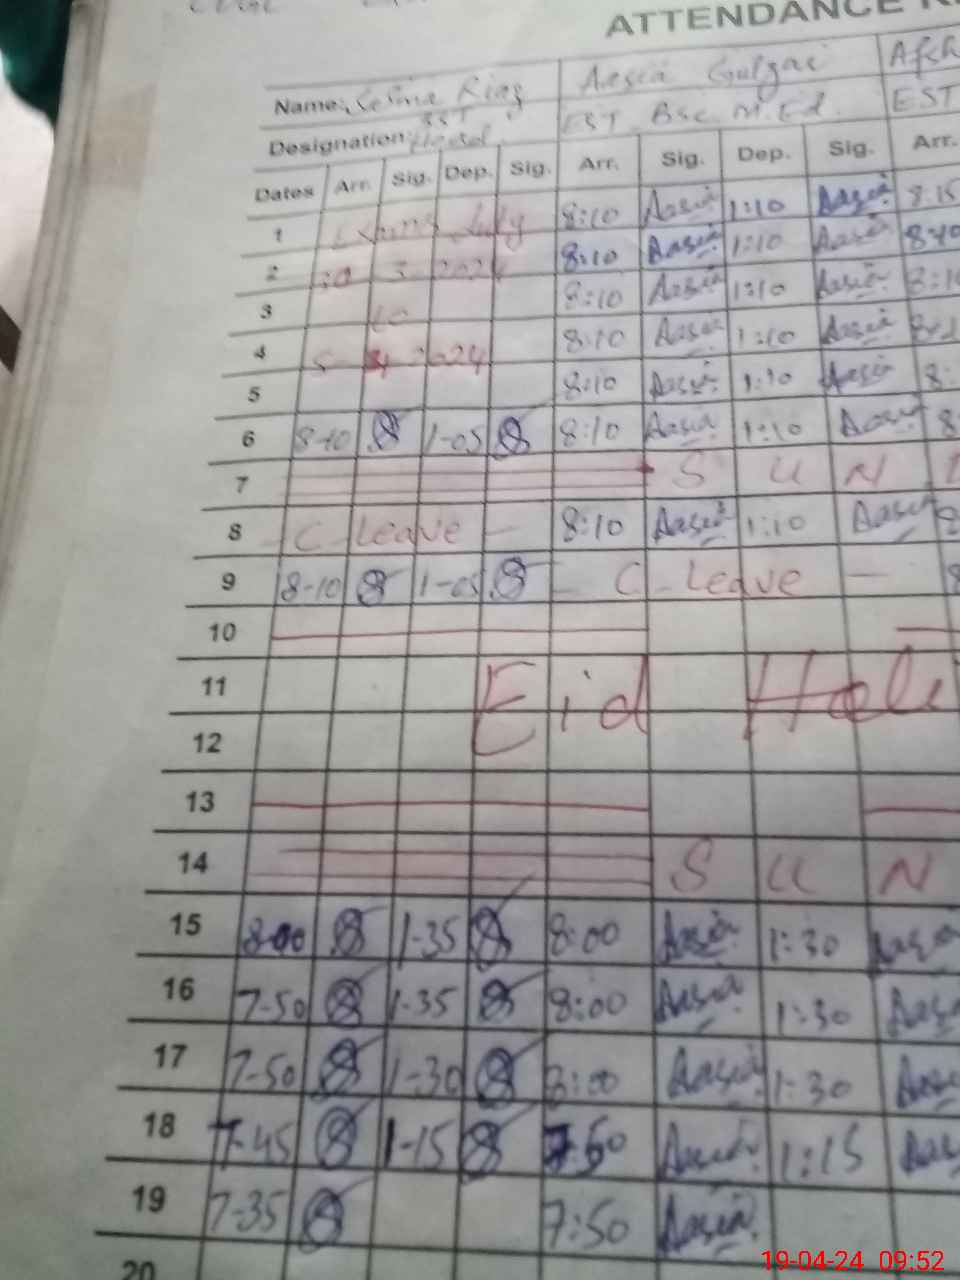 ATTENDANCE
Name: Selma Riaz Aasia Gulzar
Designation: SST EST Bsc. M.Ed. EST
Dates Arr. Sig. Dep. Sig. Arr. Sig. Dep. Sig. Arr.
1 Exams duty 8:10 Aasia 1:10 Aasia 8:15
2 3 2024 8:10 Aasia 1:10 Aasia
3 to 8:10 Aasia 1:10 Aasia 8:10
4 5 - 4 - 2024 8:10 Aasia 1:10 Aasia
5 8:10 Aasia 1:10 Aasia 8:
6 8-10 1-05 8:10 Aasia 1:10 Aasia 8:
7 S U N
8 - C - Leave - 8:10 Aasia 1:10 Aasia
9 8-10 1-05 - C - Leave -
10
11 Eid Holi
12
13
14 S U N
15 8-00 1-35 8:00 Aasia 1:30 Aasia
16 7-50 1-35 8:00 Aasia 1:30 Aasia
17 7-50 1-30 8:00 Aasia 1:30 Aasia
18 7-45 1-15 7:50 Aasia 1:15 Aasia
19 7-35 7:50 Aasia
20
19-04-24 09:52